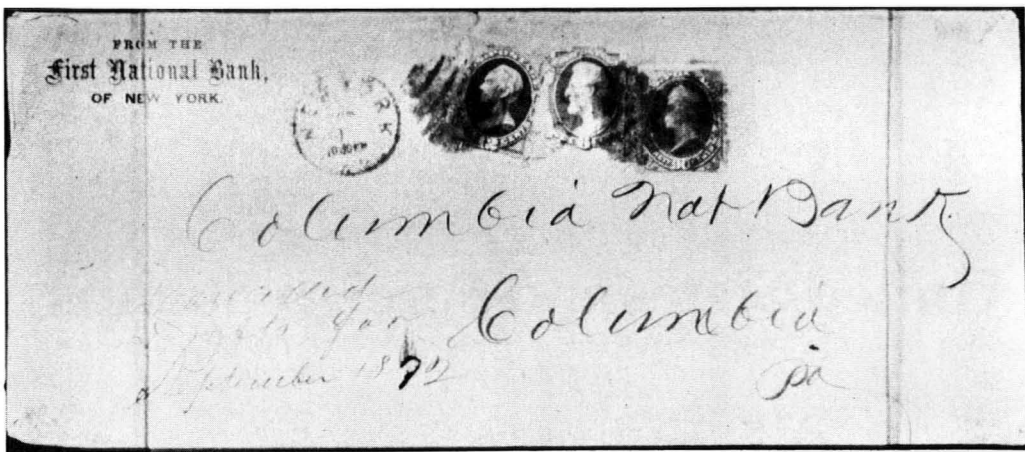 FROM THE
First National Bank,
OF NEW YORK.
YORK
Columbia Nat Bank
Columbia
for
September 1872
Pa